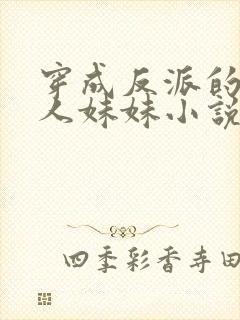 穿成反派的
人妹妹小説
四季彩香寺田